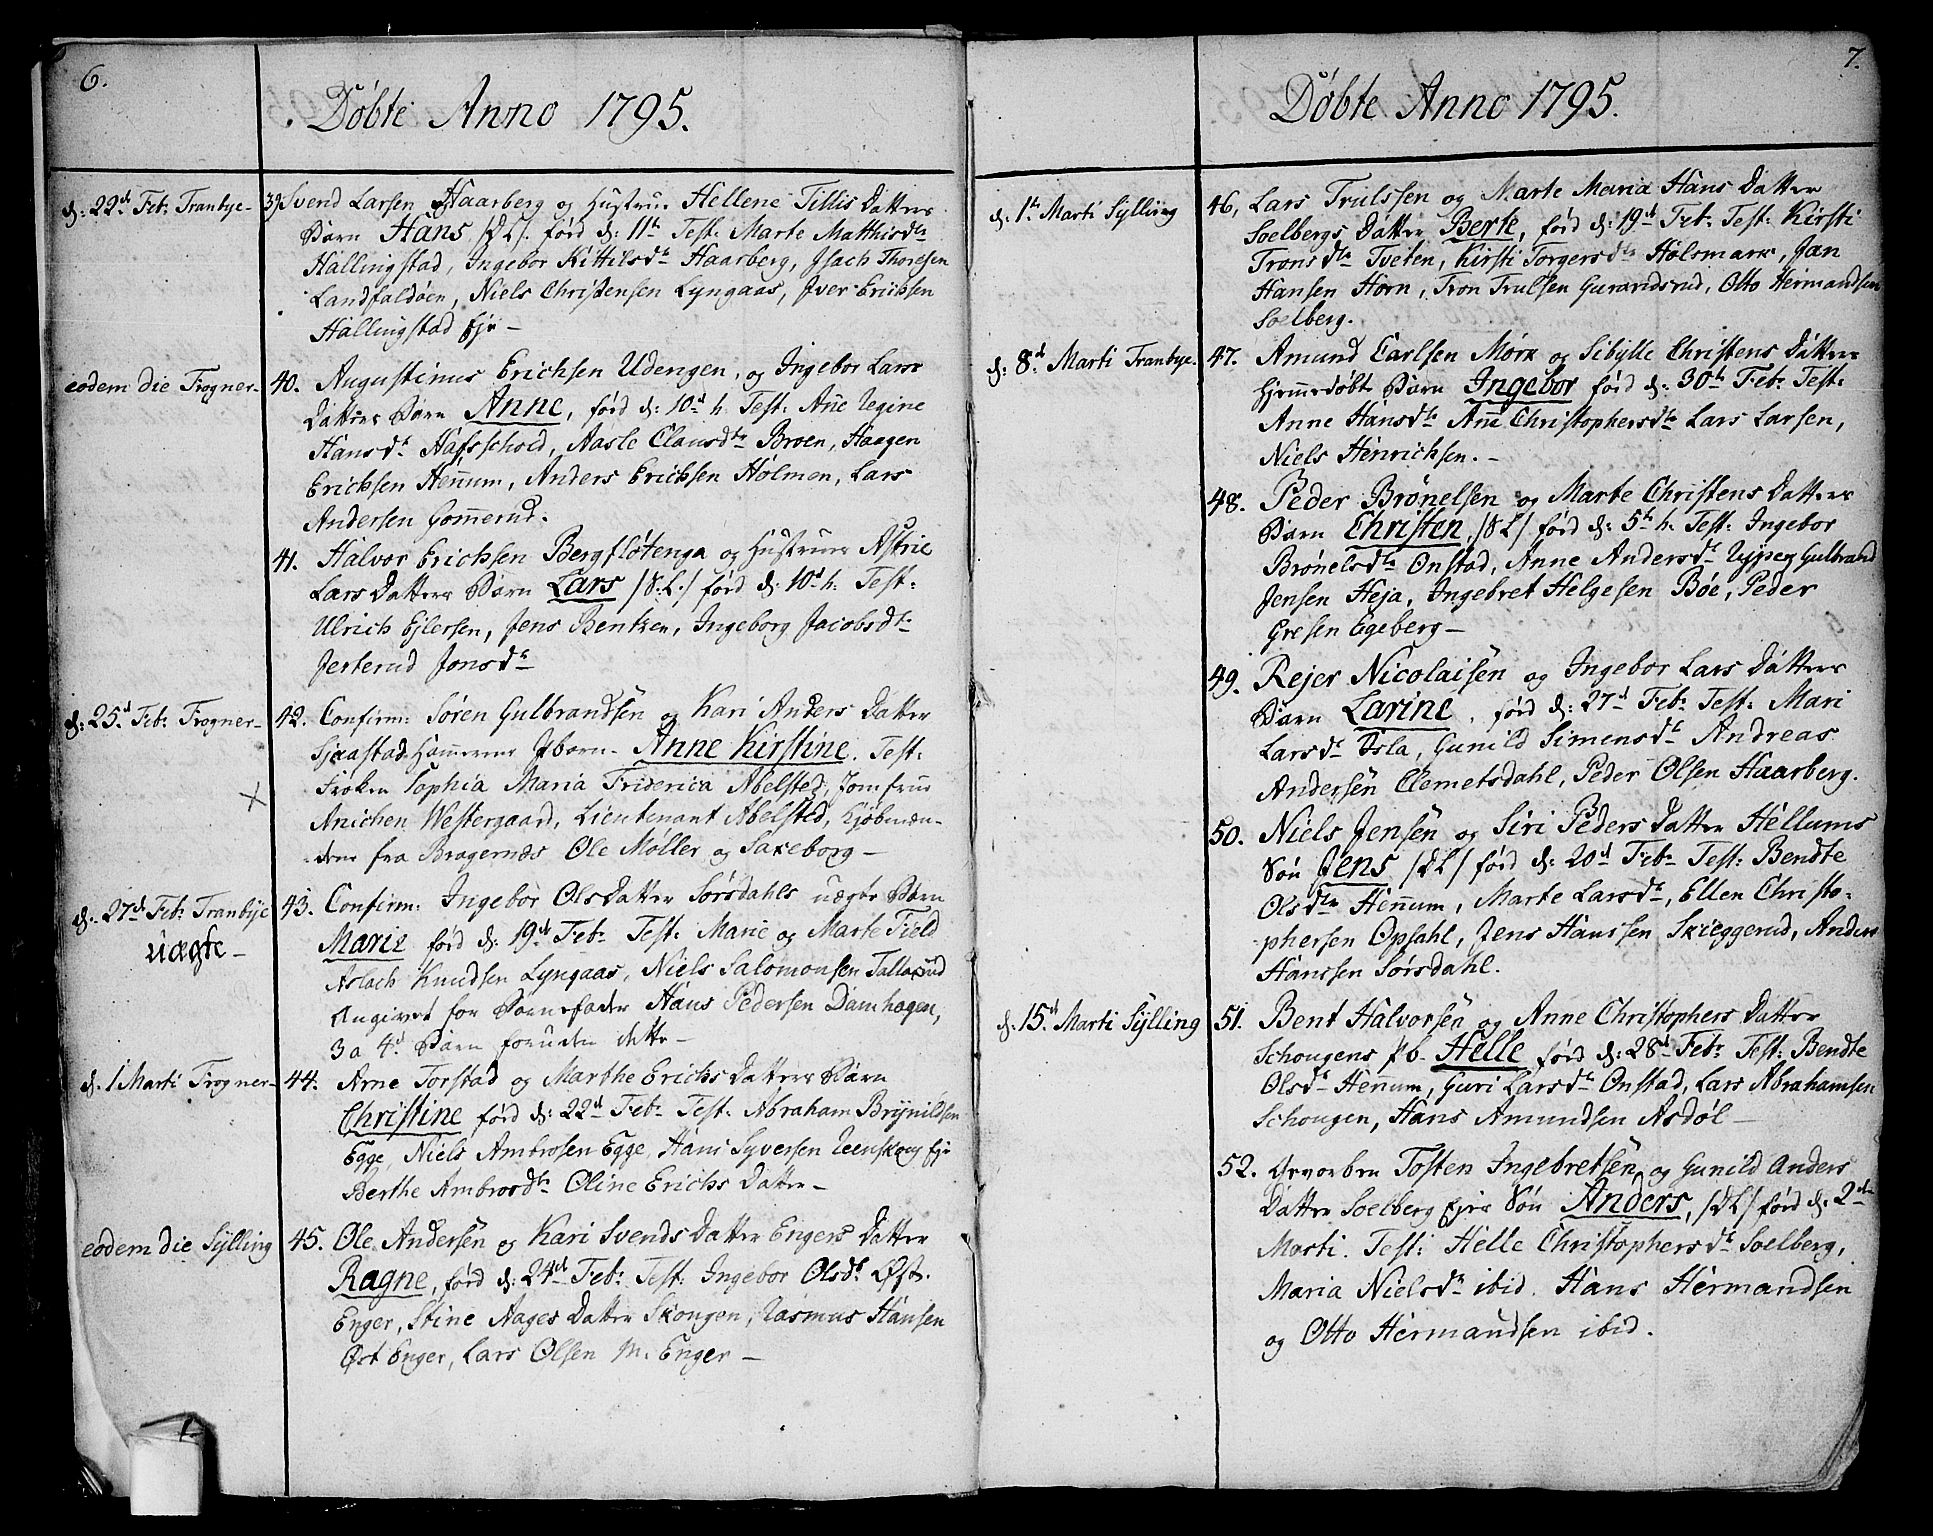 6.
Döbte Anno 1795.
d: 22d Feb: Tranbye-
39 Svend Larsen Haarberg og Hustrue Hellene Tillis Datters
Barn Hans /DL/. förd d: 11te Test: Marte Matthisdtr
Hallingstad, Ingebor Kittilsdtr Haarberg, Isach Thoresen
Landfaldöen, Niels Christensen Lyngaas, Iver Erichsen
Hallingstad Eje-
eodem die Frogner-
40. Augustinus Erichsen Udengen, og Ingebor Lars
Datters Barn Anne, förd d: 10d h. Test: Anne Regine
Hansdtr Hafsschold, Aasle Clausdtr Broen, Haagen
Erichsen Hennum, Anders Erichsen Holmen, Lars
Andersen Gommerud.
41. Halvor Erichsen Bergflötenga og Hustrues Astrie
Lars Datters Barn Lars /S:L:/ förd d: 10d h: Test:
Ulrich Ejlersen, Jens Bentzen, Ingeborg Jacobsdtr
Jerterud Jonsdtr
d: 25d Feb: Frogner-
42. Confirm: Sören Gulbrandsen og Kari Anders Datter
Sjaastad Hammerens Pbarn- Anne Kirstine. Test:
Fröken Sophia Maria Friderica Abelsted, Jomfrue
Anichen Westergaard, Lieutenant Abelsted, Kjöbmæn-
dene fra Bragernæs Ole Möller og Saxeborg-
d. 27d Feb: Tranbye
uægte-
43. Confirm: Ingebor Ols Datter Sörsdahls uægte Barn
Marie förd d: 19d Feb: Test: Marie og Marte Field
Aslach Knudsen Lyngaas, Niels Salomonsen Tallaxud
Angivet for Barnefader Hans Pedersen Damhagen,
3 a 4d Barn foruden dette-
d. 1 Marti Frogner-
44. Arne Torstad og Marthe Erichs Datters Barn
Christine förd d: 22d Feb: Test: Abraham Brynildsen
Egge, Niels Ambrosen Egge, Hans Syversen Reenskoug Eje
Berthe Ambrosdtr Oline Erichs Datter-
eodem die Sylling
45. Ole Andersen og Kari Svends Datter Engers Datter
Ragne, förd d: 24d Feb: Test: Ingebor Olsdtr Öst.
Enger, Stine Aages Datter Skougen, Rasmus Hansen
Öst Enger, Lars Olsen M. Enger-
7.
Döbte Anno 1795.
d. 1te Marti Sylling
46, Lars Trulssen og Marte Maria Hans Datter
Soelbergs Datter Berte, förd d: 19d Feb: Test: Kirsti
Tronsdtr Tveten, Kirsti Torgersdtr Holsmark, Jan
Hansen Horn, Tron Trulsen Gurandsrud, Otto Hermandsen
Soelberg.
d: 8d Marti Tranbye.
47. Amund Carlsen Mörk og Sibylle Christens Datters
hjemmedöbt Barn Ingebor förd d: 30te Feb: Test:
Anne Hansdtr Anne Christophersdtr Lars Larsen,
Niels Henrichsen.-
48. Peder Brönelsen og Marte Christens Datters
Barn Christen, /S L/ förd d: 5te h. Test: Ingebor
Brönelsdtr Onstad, Anne Andersdtr Rypeng Gulbrand
Jensen Heja, Ingebret Helgesen Böe, Peder
Gresen Egeberg-
49. Rejer Nicolaisen og Ingebor Lars Datters
Barn Larine, förd d: 27d Feb: Test: Mari
Larsdtr Usla, Gunild Simensdtr Andreas
Andersen Clemetsdahl, Peder Olsen Haarberg.
50. Niels Jensen og Siri Peders Datter Hellums
Sön Jens /DL/ förd d: 20d Feb: Test: Bendte
Olsdtr Hennum, Marte Larsdtr, Ellen Christo-
phersen Opsahl, Jens Hanssen Skieggerud, Anders
Hanssen Sörsdahl.
d. 15d Marti Sylling
51. Bent Halvorsen og Anne Christophers Datter
Schougens Pb. Helle förd d: 28d Feb: Test: Bendte
Olsdtr Hennum, Guri Larsdtr Onstad, Lars Abrahamsen
Schougen, Hans Amundsen Asdöl-
52. Gevorben Tosten Ingebretsen og Gunild Anders
Datter Soelberg Ejes Sön Anders, /DL/ förd d. 2den
Marti. Test: Helle Christophersdtr Soelberg,
Maria Nielsdtr ibid. Hans Hermandsen
og Otto Hermandsen ibid.